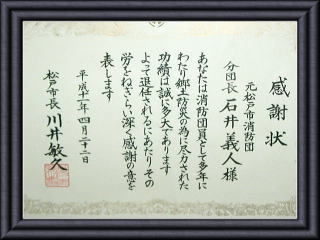 感謝状
元松戸市消防団
分団長 石井義人様
あなたは消防団員として多年に
わたり郷土防災の為に尽力された
功績は誠に多大であります
よって退任されるにあたりその
労をねぎらい深く感謝の意を
表します
平成十二年四月二十二日
松戸市長 川井敏久